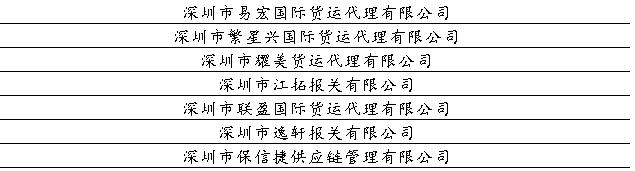 深圳市易宏国际货运代理有限公司
深圳市繁星兴国际货运代理有限公司
深圳市耀美货运代理有限公司
深圳市江拓报关有限公司
深圳市联盈国际货运代理有限公司
深圳市逸轩报关有限公司
深圳市保信捷供应链管理有限公司